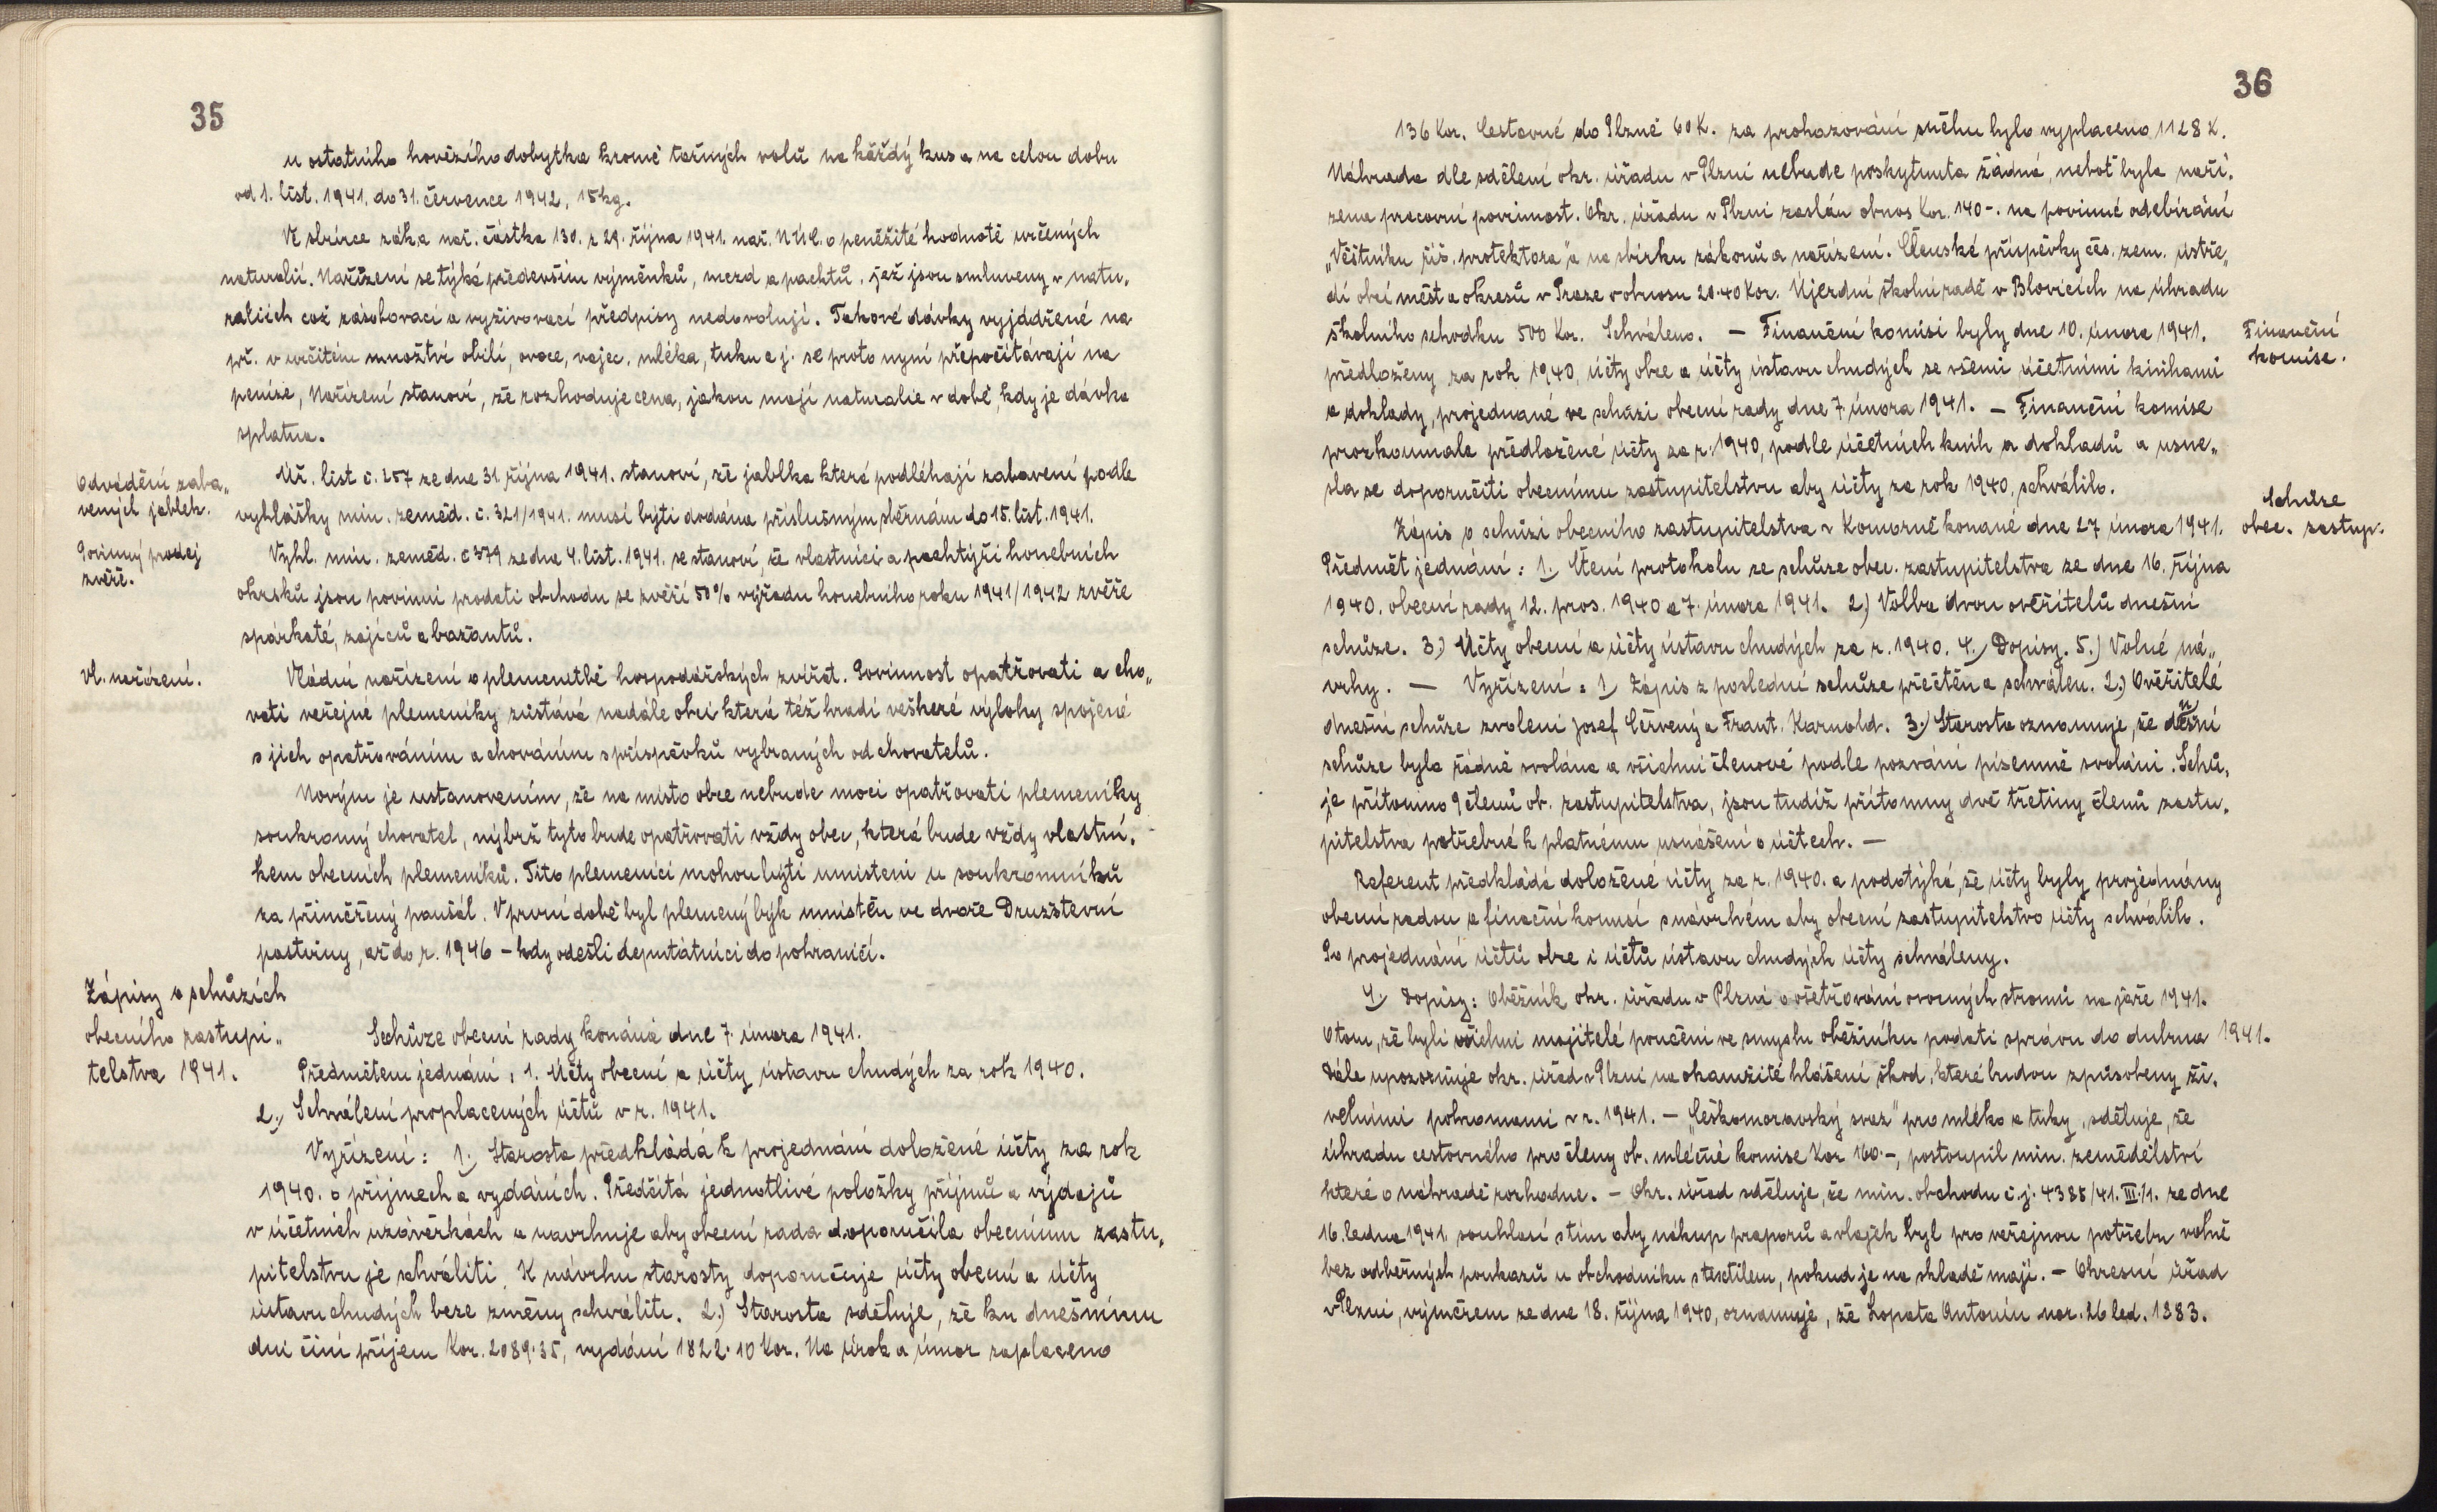 35
u ostatního hovězího dobytka kromě tažných volů na každý kus a na celou dobu
od 1. list. 1941. do 31. července 1942, 15 kg.
Ve sbírce zák. a nař. částka 130. z 29. října 1941. nař. N.Ú.C. o peněžité hodnotě určených
naturalií. Nařízení se týká především výměnků, mezd a pachtů, jež jsou smluveny v natu„
raliích což zásobovací a vyživovací předpisy nedovolují. Takové dávky vyjádřené na
př. v určitém množtví obilí, ovoce, vajec, mléka, tuku a j. se proto nyní přepočítávají na
peníze, Nařízení stanoví, že rozhoduje cena, jakou mají naturalie v době, kdy je dávka
splatna.
Odvádění zaba„
vených jablek.
Úř. list č. 257 ze dne 31 října 1941. stanoví, že jablka které podléhají zabavení podle
vyhlášky min. zeměd. č. 321/1941. musí býti dodána příslušným sběrnám do 15. list. 1941.
Povinný prodej
zvěře.
Vyhl. min. zeměd. č 379 ze dne 4. list. 1941. se stanoví, že vlastníci a pachtýři honebních
okrsků jsou povinni prodati obchodu se zvěří 50% výřadu honebního roku 1941/1942 zvěře
spárkaté, zajíců a bažantů.
Vl. nařízení.
Vládní nařízení o plemenitbě hospodářských zvířat. Povinnost opatřovati a cho„
vati veřejné plemeníky zůstává nadále obci která též hradí veškeré výlohy spojené
s jich opatřováním a chováním s příspěvků vybraných od chovatelů.
Novým je ustanovením, že na místo obce nebude moci opatřovati plemeníky
soukromý chovatel, nýbrž tyto bude opatřovati vždy obec, která bude vždy vlastní„
kem obecních plemeníků. Tito plemeníci mohou býti umisteni u soukromníků
za přiměřený paušál. V první době byl plemený býk umistěn ve dvoře Družstevní
pastviny, až do r. 1946 – kdy odešli deputátníci do pohraničí.
Zápisy o schůzích
obecního zastupi„
telstva 1941.
Schůze obecní rady konáná dne 7. února 1941.
Předmětem jednání: 1. Účty obecní a účty ústavu chudých za rok 1940.
2.) Schválení proplacených účtů v r. 1941.
Vyřízení: 1.) Starosta předkládá k projednání doložené účty za rok
1940. o příjmech a vydáních. Předčítá jednotlivé položky příjmů a výdajů
v účetních uzávěrkách a navrhuje aby obecní rada doporučila obecnímu zastu„
pitelstvu je schváliti. K návrhu starosty doporučuje účty obecní a účty
ústavu chudých beze změny schváliti. 2.) Starosta sděluje, že ku dnešnímu
dni činí příjem Kor. 2089.35, vydání 1822.10 Kor. Na úrok a úmor zaplaceno
36
136 Kor. Cestovné do Plzně 60 K. za prohazování sněhu bylo vyplaceno 1128 K.
Náhrada dle sdělení okr. úřadu v Plzni nebude poskytnuta žádná, neboť byla naří„
zena pracovní povinnost. Okr. úřadu v Plzni zaslán obnos Kor. 140-. na povinné odebírání
„Věstníku říš. protektora“, a na sbírku zákonů a nařízení. Členské příspěvky čes. zem. ústře„
dí obcí měst a okresů v Praze v obnosu 20.40 Kor. Újezdní školní radě v Blovicích na úhradu
školního schodku 500 Kor. Schváleno. — Finanční komisi byly dne 10. února 1941.
Finanční
komise.
předloženy za rok 1940, účty obce a účty ústavu chudých se všemi účetními knihami
a doklady, projednané ve schůzi obecní rady dne 7 února 1941. — Finanční komise
prozkoumala předložené účty za r. 1940, podle účetních knih a dokladů a usne„
sla se doporučiti obecnímu zastupitelstvu aby účty za rok 1940, schválilo.
Schůze
obec. zastup.
Zápis o schůzi obecního zastupitelstva v Komorně konané dne 27 února 1941.
Předmět jednání: 1.) Čtení protokolu ze schůze obec. zastupitelstva ze dne 16. října
1940. obecní rady 12. pros. 1940 a 7. února 1941. 2.) Volba dvou ověřitelů dnešní
schůze. 3.) Účty obecní a účty ústavu chudých za r. 1940. 4.) Dopisy. 5.) Volné ná„
vrhy. — Vyřízení: 1.) Zápis z poslední schůze přečtěn a schválen. 2.) Ověřitelé
dnešní schůze zvoleni Josef Červený a Frant. Karnold. 3.) Starosta oznamuje, že dnešní
schůze byla řádně svolána a všichni členové podle pozvání písemně svoláni. Schů„
je přítomno 9 členů ob. zastupitelstva, jsou tudíž přítomny dvě třetiny členů zastu„
pitelstva potřebné k platnému usnášení o účtech. —
Referent předkládá doložené účty za r. 1940. a podotýká, že účty byly projednány
obecní radou a finační komisí s návrhem aby obecní zastupitelstvo účty schválilo.
Po projednání účtů obce i účtů ústavu chudých účty schváleny.
4.) Dopisy: Oběžník okr. úřadu v Plzni o ošetřování ovocných stromů na jaře 1941.
Otom, že byli všichni majitelé poučeni ve smyslu oběžníku podati správu do dubna 1941.
Dále upozorňuje okr. úřad v Plzni na okamžité hlášení škod, které budou způsobeny ži„
velními pohromami v r. 1941. — „Českomoravský svaz“ pro mléko a tuky, sděluje, že
úhradu cestovného pro členy ob. mléčné komise Kor 160.-, postoupil min. zemědělství
které o náhradě rozhodne. — Okr. úřad sděluje, že min. obchodu č.j. 4385/41. III./1. ze dne
16. ledna 1941. souhlasí s tím aby nákup praporů a vlajek byl pro veřejnou potřebu volně
bez odběrných poukazů u obchodníku s textilem, pokud je na skladě mají. — Okresní úřad
v Plzni, výměrem ze dne 18. října 1940, oznamuje, že Lopata Antonín nar. 26 led. 1883.